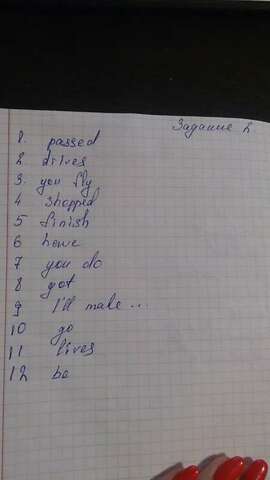 Задание 2
1. passed
2 drives
3. you fly
4 shopped
5 finish
6 have
7 you do
8 got
9 I'll make ...
10 go
11 lives
12 be